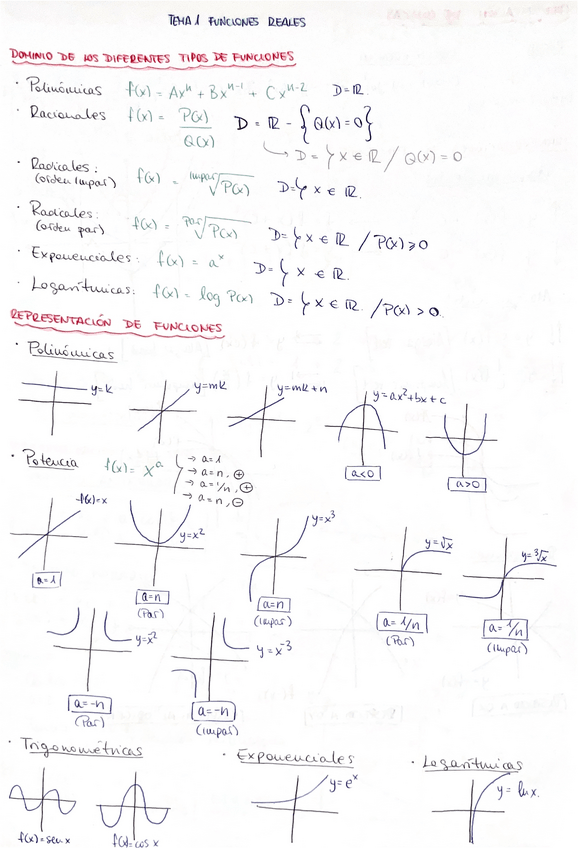 TEMA 1 FUNCIONES REALES
DOMINIO DE LOS DIFERENTES TIPOS DE FUNCIONES
· Polinómicas f(x) = Axⁿ + Bxⁿ⁻¹ + Cxⁿ⁻² D = ℝ.
· Racionales f(x) = P(x)/Q(x) D = ℝ - {Q(x) = 0}
↳ D = { x ∈ ℝ / Q(x) = 0
· Radicales: (orden impar) f(x) = impar√P(x) D = { x ∈ ℝ.
· Radicales: (orden par) f(x) = par√P(x) D = { x ∈ ℝ / P(x) ≥ 0
· Exponenciales: f(x) = aˣ D = { x ∈ ℝ.
· Logarítmicas: f(x) = log P(x) D = { x ∈ ℝ. / P(x) > 0.
REPRESENTACIÓN DE FUNCIONES
· Polinómicas
y=k y=mk y=mk+n y=ax²+bx+c
a<0 a>0
· Potencia f(x) = xᵃ
→ a=1
→ a=n, ⊕
→ a=1/n, ⊕
→ a=n, ⊖
f(x)=x y=x² y=x³ y=√x y=³√x
a=1 a=n (Par) a=n (impar) a=1/n (Par) a=1/n (impar)
y=x⁻² y=x⁻³
a=-n (Par) a=-n (impar)
· Trigonométricas · Exponenciales · Logarítmicas
y=eˣ y=ln x.
f(x)=sen x f(x)=cos x